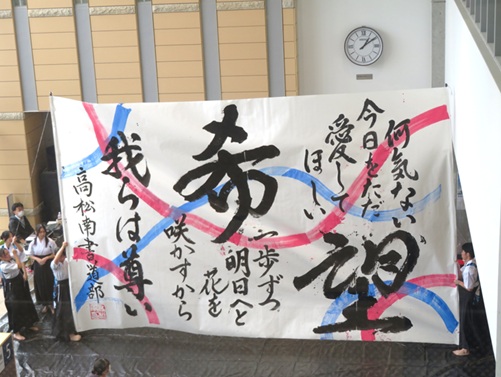 何気ない
今日をただ
愛して
ほしい
希望
一歩ずつ
明日へと
花を
咲かすから
我らは尊い
高松南書道部